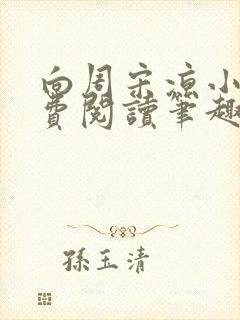 向周宋涼小
費閱讀筆趣
孫玉清